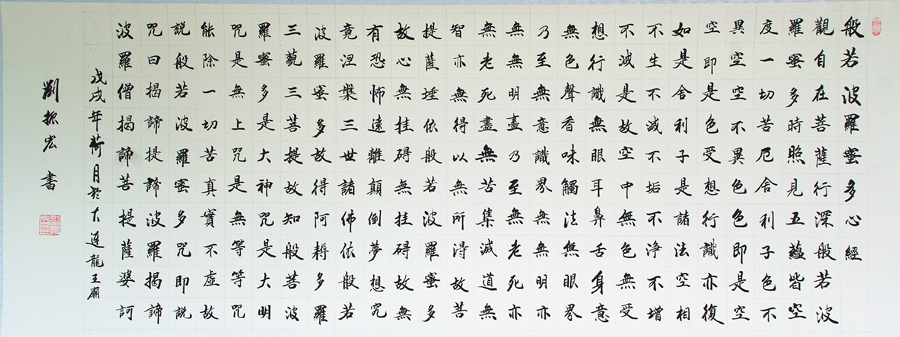 般若波羅蜜多心經
觀自在菩薩行深般若波
羅蜜多時照見五蘊皆空
度一切苦厄舍利子色不
異空空不異色色即是空
空即是色受想行識亦復
如是舍利子是諸法空相
不生不滅不垢不淨不增
不減是故空中無色無受
想行識無眼耳鼻舌身意
無色聲香味觸法無眼界
乃至無意識界無無明亦
無無明盡乃至無老死亦
無老死盡無苦集滅道無
智亦無得以無所得故菩
提薩埵依般若波羅蜜多
故心無挂礙無挂礙故無
有恐怖遠離顛倒夢想究
竟涅槃三世諸佛依般若
波羅蜜多故得阿耨多羅
三藐三菩提故知般若波
羅蜜多是大神咒是大明
咒是無上咒是無等等咒
能除一切苦真實不虛故
說般若波羅蜜多咒即說
咒曰揭諦揭諦波羅揭諦
波羅僧揭諦菩提薩婆訶
戊戌年荷月於大連龍王廟
劉振宏書